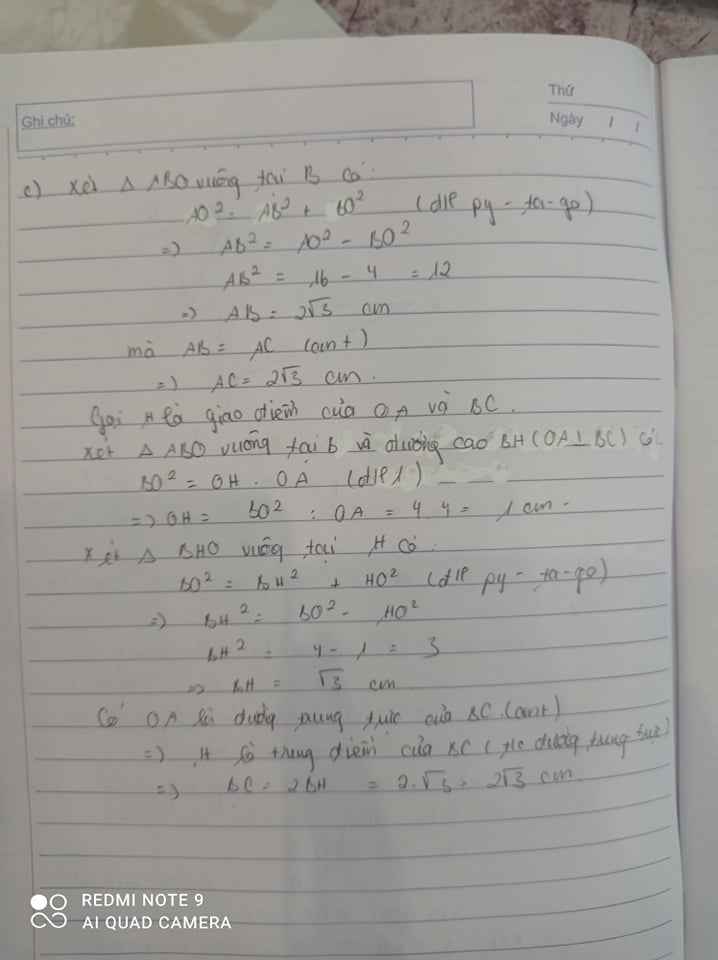 Ghi chú:
Thứ
Ngày / /
c) Xét Δ ABO vuông tại B có:
AO² = AB² + BO² (đlp py - ta - go)
=> AB² = AO² - BO²
AB² = 16 - 4 = 12
=> AB = 2√3 cm
mà AB = AC (cmt)
=> AC = 2√3 cm.
Gọi H là giao điểm của OA và BC.
Xét Δ ABO vuông tại B và đường cao BH (OA ⊥ BC) có
BO² = OH . OA (đlp 1)
=> OH = BO² : OA = 4 : 4 = 1 cm.
Xét Δ BHO vuông tại H có.
BO² = BH² + HO² (đlp py - ta - go)
=> BH² = BO² - HO²
BH² = 4 - 1 = 3
=> BH = √3 cm
Có OA là đường trung trực của BC (cmt)
=> H là trung điểm của BC ( t/c đường trung trực)
=> BC = 2BH = 2.√3 = 2√3 cm
REDMI NOTE 9
AI QUAD CAMERA